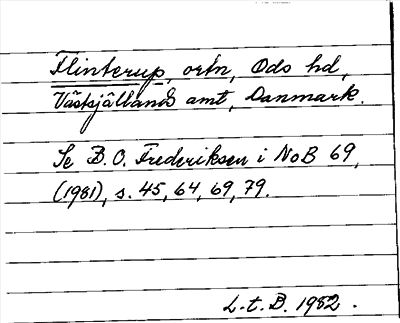 Flinterup, ortn, Ods hd,
Västsjällands amt, Danmark.
Se B.O. Frederiksen i NoB 69,
(1981), s. 45, 64, 69, 79.
L.t.B. 1982.